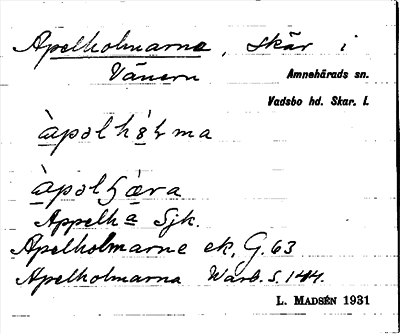 Apelholmarne, skär i
Vänern
Amnehärads sn.
Vadsbo hd. Skar. l.
àpəlhɔ̀ɫma
àpəlhæra
Appelha Sjk.
Apelholmarne ek. G. 63
Apelholmarna Warb. S. 144.
L. MADSÉN 1931